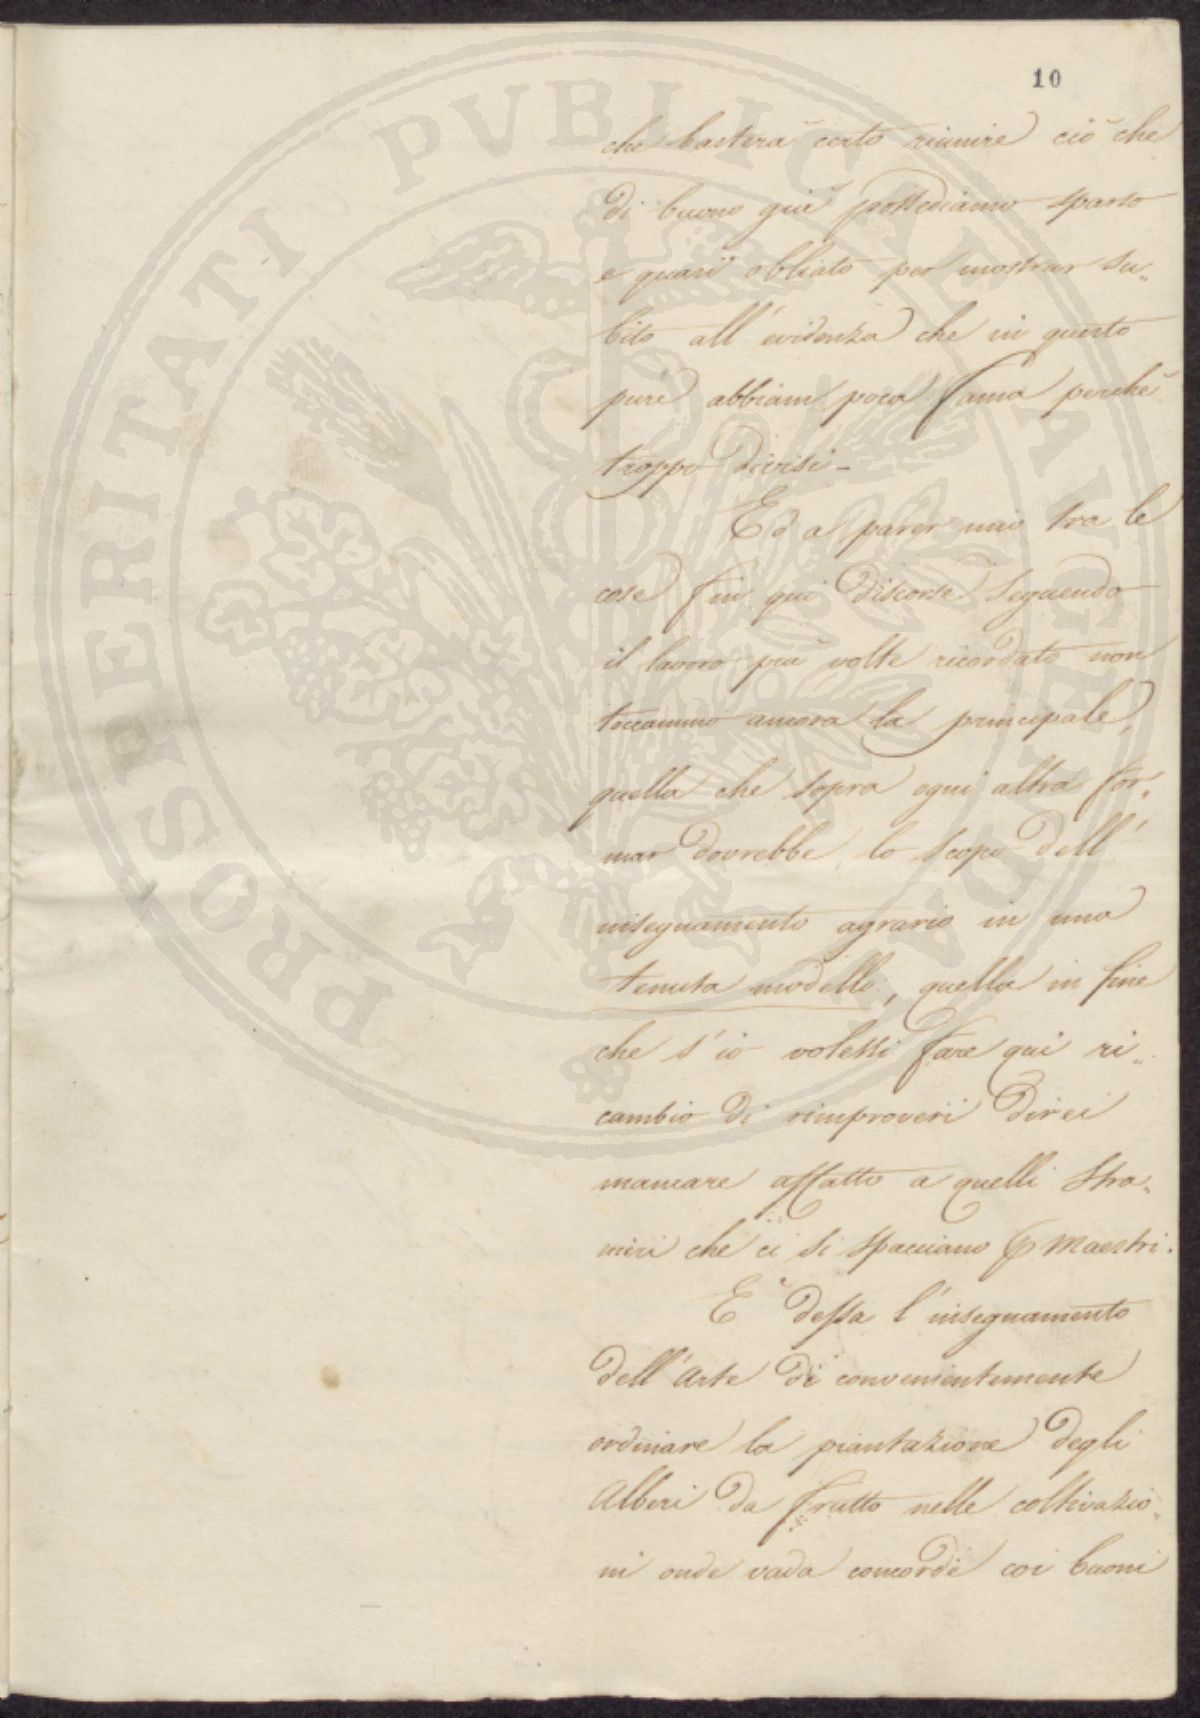 10
che basterà certo riunire ciò che
di buono già possediamo sparso
e quasi obbliato per mostrar su„
bito all'evidenza che in questo
pure abbiam poca fama perchè
troppo divisi -
Ed a parer mio tra le
cose fin qui discorse seguendo
il lavoro più volte ricordato non
toccammo ancora la principale,
quella che sopra ogni altra for„
mar dovrebbe lo scopo dell'
insegnamento agrario in una
tenuta modello, quella in fine
che s'io volessi fare qui ri„
cambio di rimproveri direi
mancare affatto a quelli stra„
nieri che ci si spacciano p Maestri.
È dessa l'insegnamento
dell'Arte di convenientemente
ordinare la piantazione degli
Alberi da frutto nelle coltivazio„
ni onde vada concorde coi buoni
PROSPERITATI PVBLICAE AVGENDAE